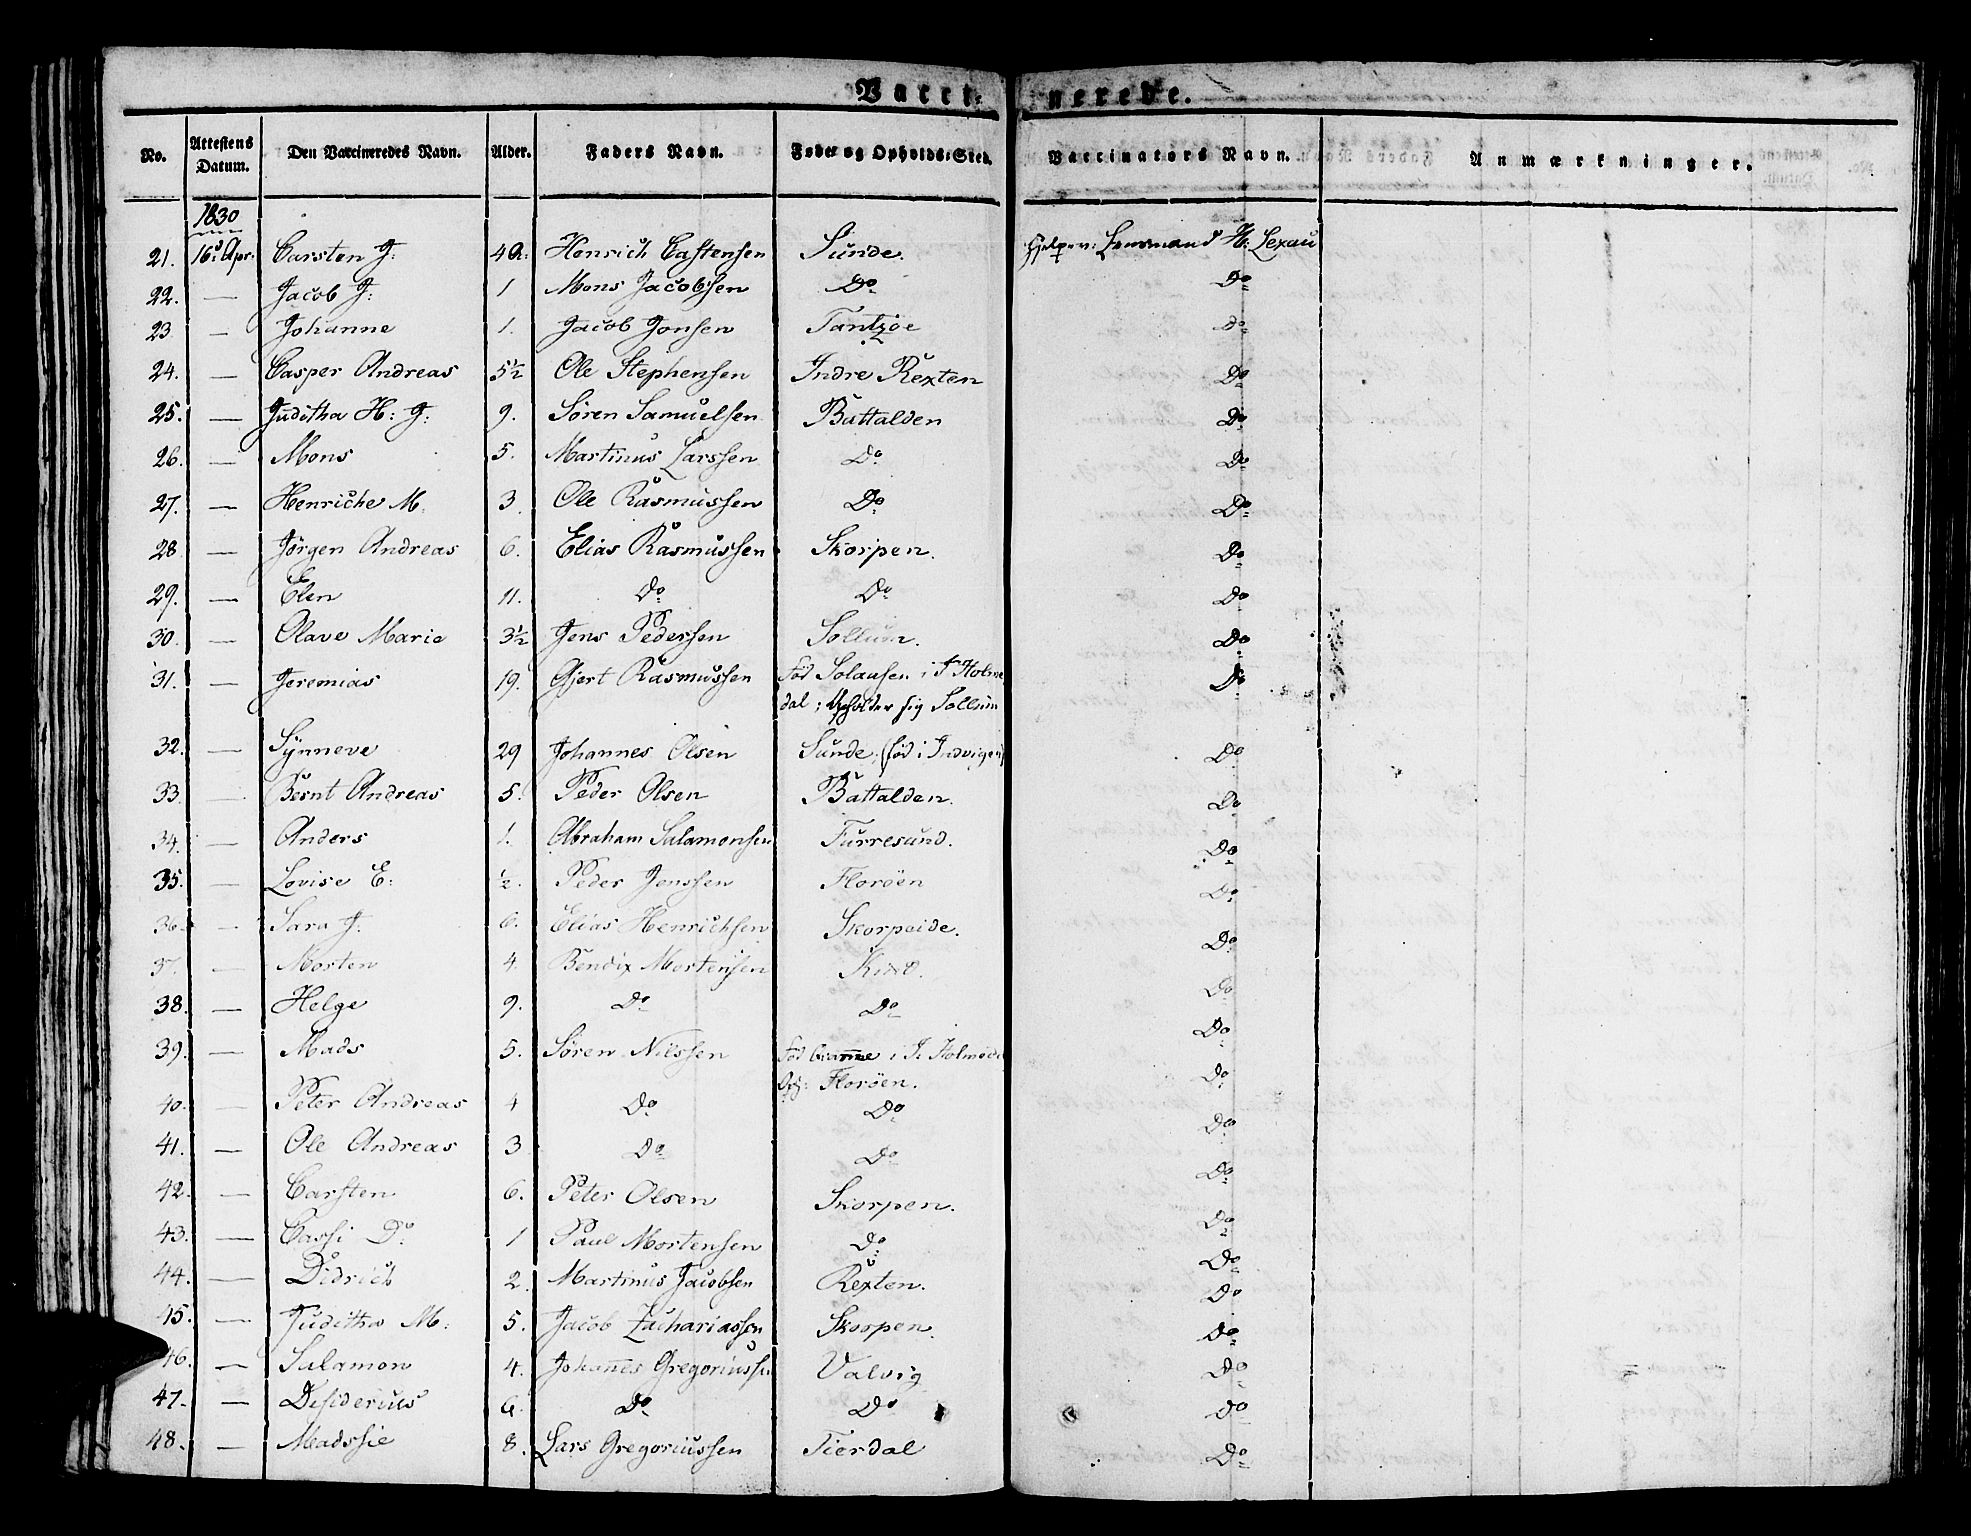 Vacci- nerede.
No. Attestens Datum. Den Vaccineredes Navn. Alder. Faders Navn. Føde- og Opholds-Sted. Vaccinators Navn. Anmærkninger.
1830
21. 16: Apr: Carsten J: 4 Henrich Castensen Sunde. Hjelpev: Lensmand H: Lexau
22. — Jacob J: 1 Mons Jacobsen Do Do
23 — Johanne 1. Jacob Jonsen Tantzøe Do
24. — Casper Andreas 5½ Ole Stephensen Indre Rexten Do
25. — Juditha H: J: 9. Søren Samuelsen Battalden Do
26. — Mons 5. Martinus Larssen Do Do
27. — Henriche M. 3. Ole Rasmussen Do Do
28. — Jørgen Andreas 6. Elias Rasmussen Skorpen. Do
29. — Elen 11. Do Do Do
30. — Olave Marie 3½ Jens Pedersen Sollum. Do
31. — Jeremias 19. Gjert Rasmussen fød Solausen i J Holme Do
dal; Opholder sig Sollum
32. — Synneve 29 Johannes Olsen Sunde, (fød i Indvigen) Do
33. — Bernt Andreas 5. Peder Olsen Battalden. Do
34. — Anders 1. Abraham Salamonsen Furresund. Do
35. — Lovise E: ½. Peder Jenssen Florøen Do
36. — Sara J. 6. Elias Henrichsen Skorpeide. Do
37. — Morten 4. Bendix Mortensen Kind. Do
38. — Helge 9. Do Do Do
39. — Mads 5. Søren Nilssen fød i J. Holmed Do
Florøen.
40. — Peter Andreas 4 Do Do Do
41. — Ole Andreas 3 Do Do Do
42. — Carsten 6. Peter Olsen Skorpen. Do
43. — Cassi Do 1 Paul Mortensen Do Do
44. — Didrich 2. Martinus Jacobsen Rexten. Do
45. — Juditha M: 5. Jacob Zachariassen Skorpen. Do
46. — Salamon 4. Johannes Gregoriussen Valvig Do
47. — Desiderius 6. Do Do Do
48. — Madssie 8. Lars Gregoriussen Tierdal Do